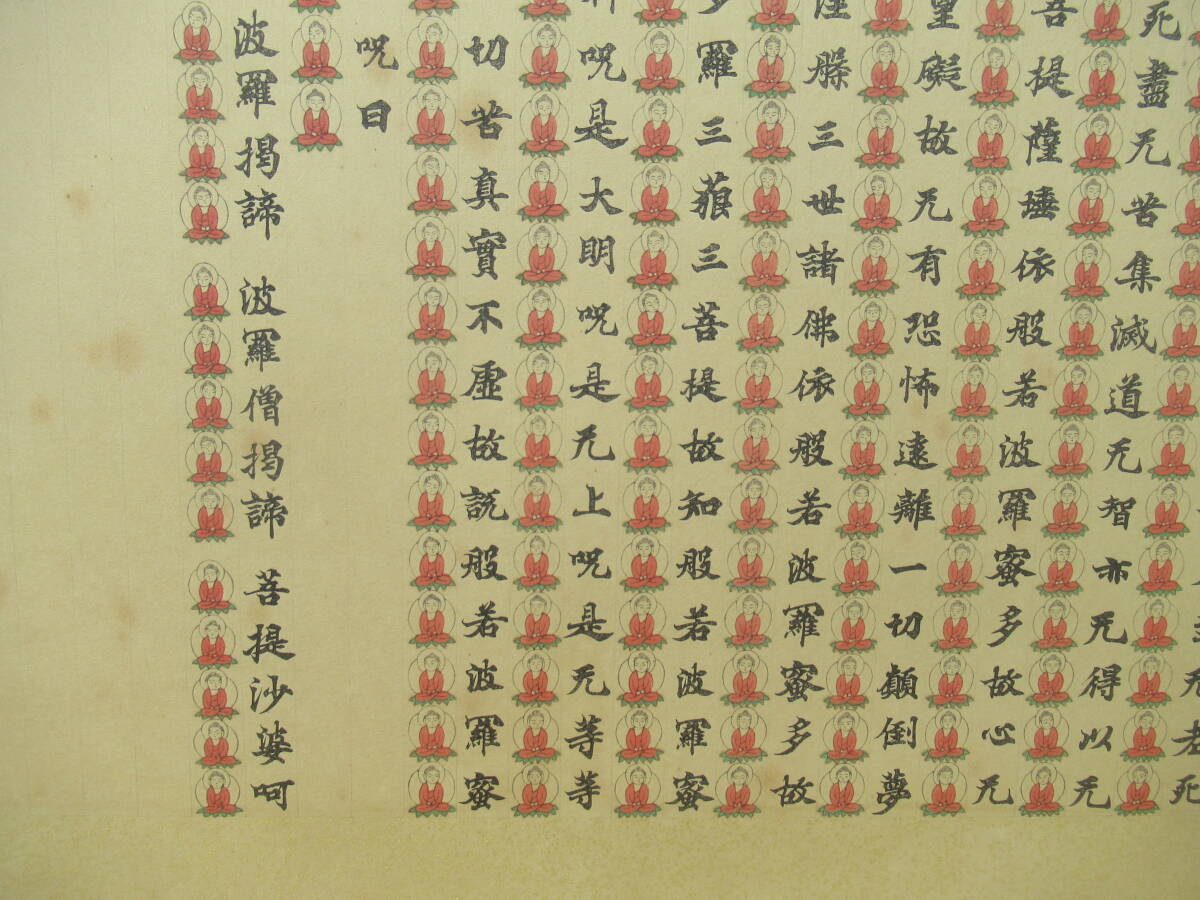 死
死盡无苦集滅道无智亦无得以无
菩提薩埵依般若波羅蜜多故心无
罣礙故无有恐怖遠離一切顛倒夢
涅槃三世諸佛依般若波羅蜜多故
多羅三藐三菩提故知般若波羅蜜
呪是大明呪是无上呪是无等等
切苦真實不虛故説般若波羅蜜
呪曰
波羅揭諦 波羅僧揭諦 菩提沙婆呵